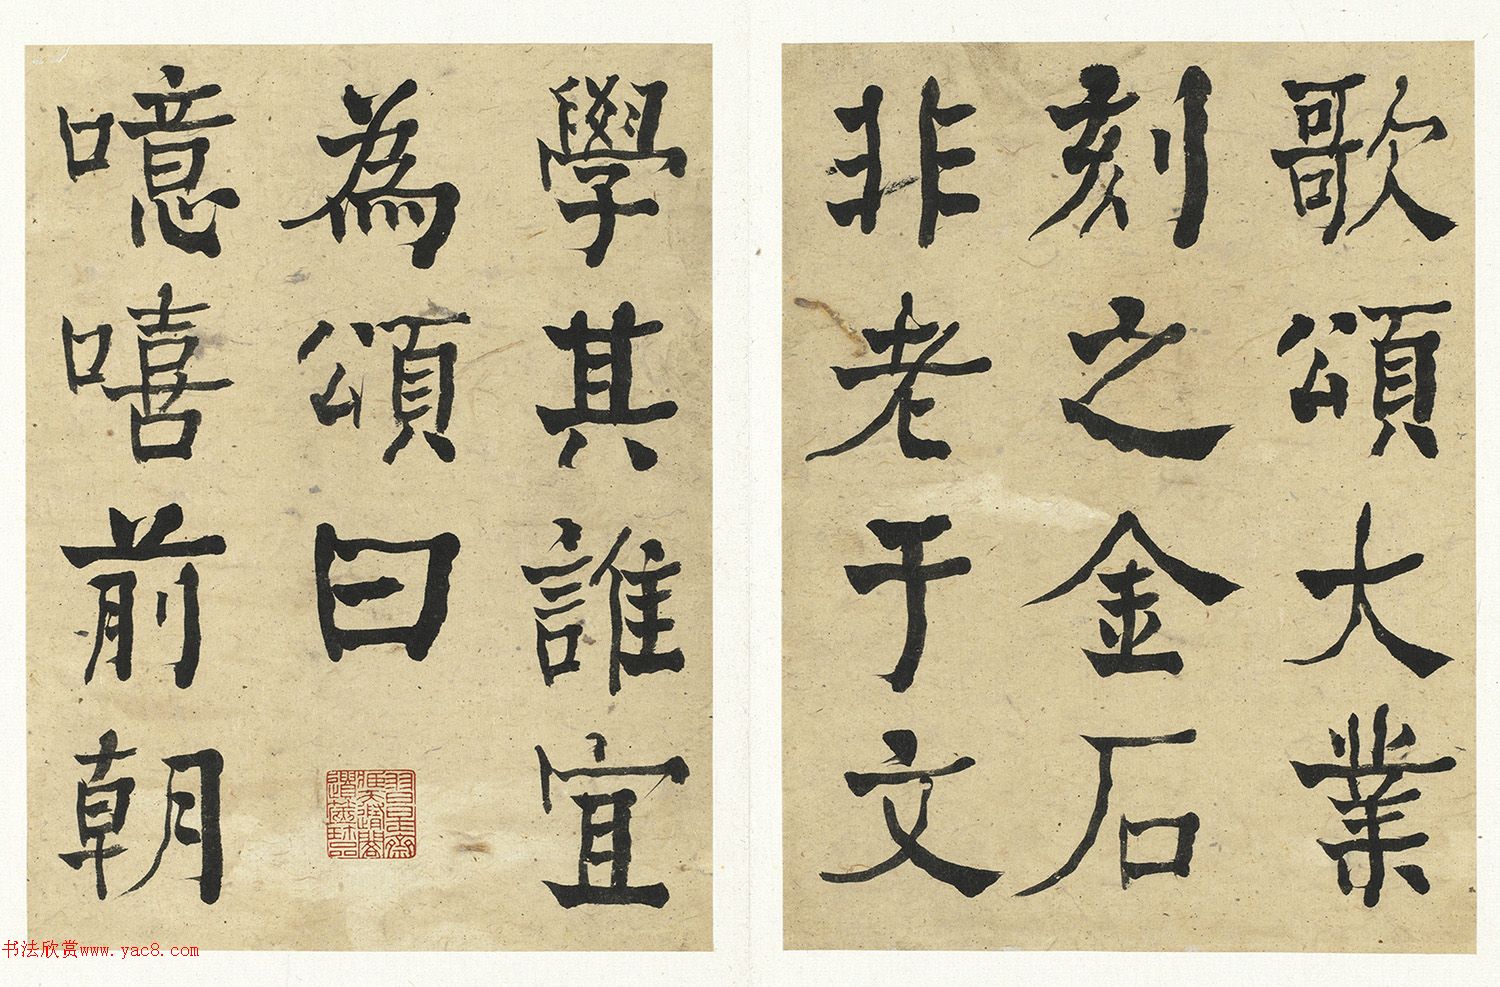 歌頌大業
刻之金石
非老于文
學其誰宜
為頌曰
噫嘻前朝
书法欣赏www.yac8.com